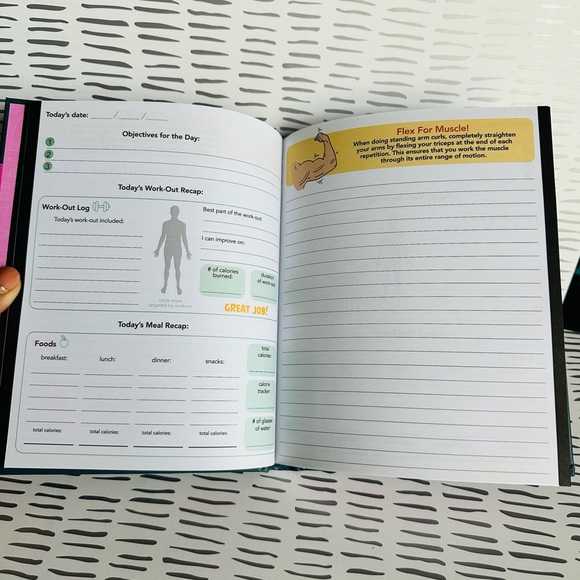 Today's date: ____/____/____
Objectives for the Day:
1
2
3
Today's Work-Out Recap:
Work-Out Log
Today's work-out included:
Best part of the work-out:
I can improve on:
# of calories
burned:
duration
of work-out:
circle areas
targeted by workout
GREAT JOB!
Today's Meal Recap:
Foods
breakfast: lunch: dinner: snacks:
total
calories
calorie
tracker
# of glasses
of water:
total calories: total calories: total calories: total calories:
Flex For Muscle!
When doing standing arm curls, completely straighten
your arms by flexing your triceps at the end of each
repetition. This ensures that you work the muscle
through its entire range of motion.